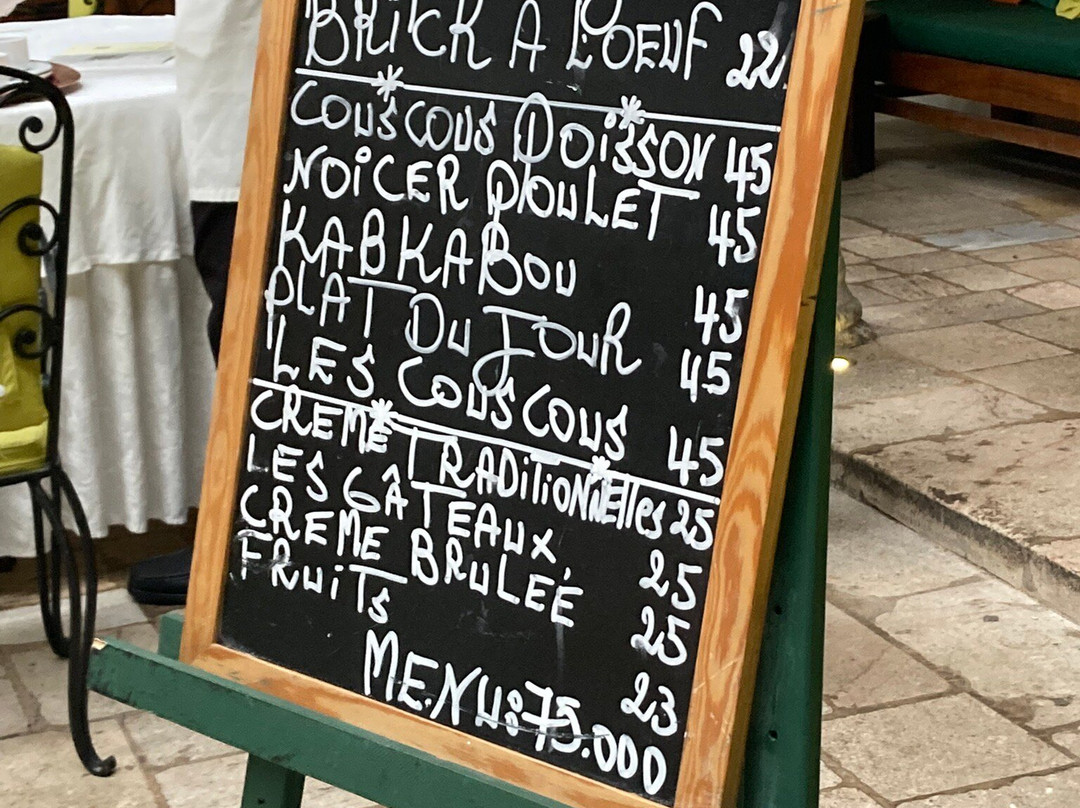 BRiCK A L'OEUF 22
COUSCOUS POiSSON 45
NOiCER POULET 45
KABKABOU 45
PLAT DU JOUR 45
LES COUSCOUS 45
CREME TRADiTiONNElles 25
LES GÂTEAUX, 25
CREME BRULEÉ 25
FRUiTS 23
MENU: 75.000